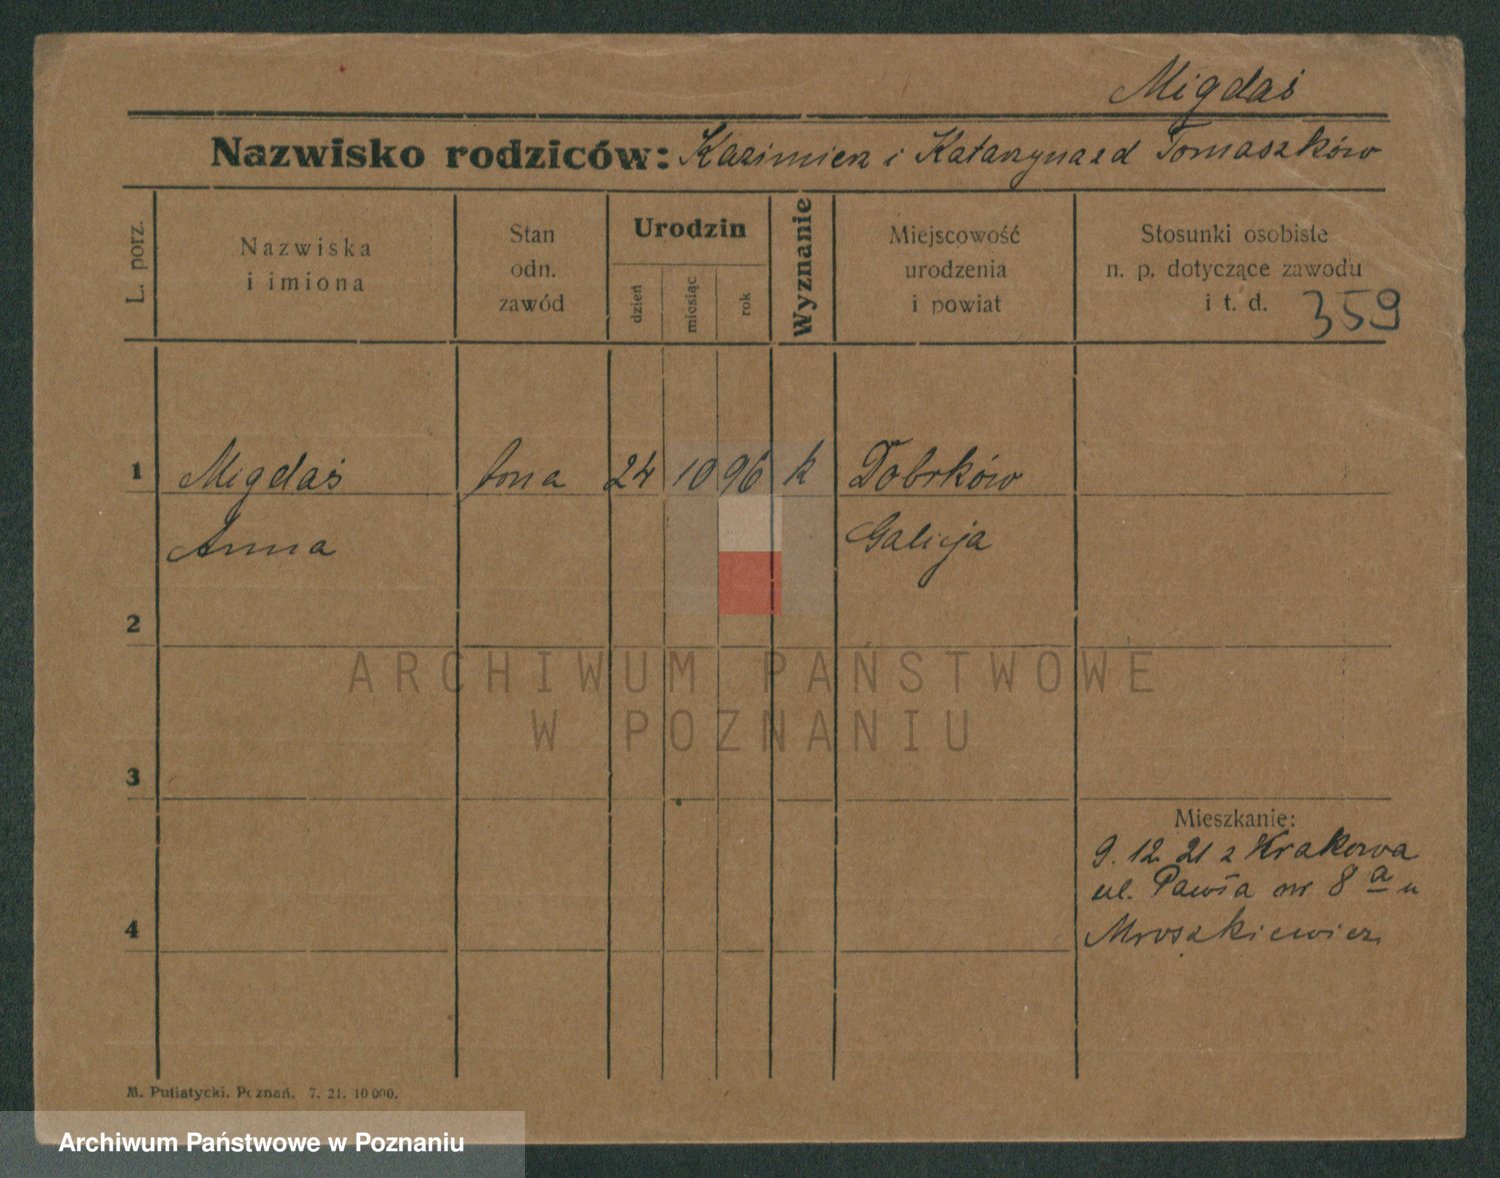 Migdaś
Nazwisko rodziców: Kazimierz i Katarzyna z d Tomaszków
L. porz.
Nazwiska
i imiona
Stan
odn.
zawód
Urodzin
dzień
miesiąc
rok
Wyznanie
Miejscowość
urodzenia
i powiat
Stosunki osobiste
n. p. dotyczące zawodu
i t. d. 359
1 Migdaś żona 24 10 96 k Dobrków
Anna Galicja
2
ARCHIWUM PAŃSTWOWE
W POZNANIU
3
Mieszkanie:
9. 12. 21 z Krakowa
ul. Pawła nr 8 a u
4 Mroszkiewicz
M. Putiatycki. Poznań. 7. 21. 10 000.
Archiwum Państwowe w Poznaniu